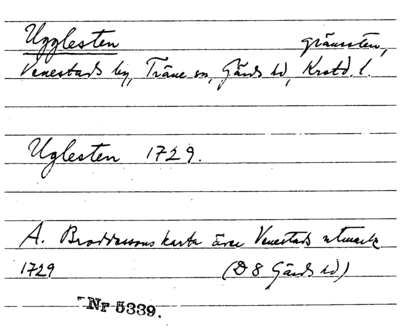 Ugglesten gränssten,
Venestads by, Träne sn, Gärds hd, Krstd. l.
Uglesten 1729.
A. Broddessons karta över Venestads utmark
1729 (D 8 Gärds hd)
Nr 5339.